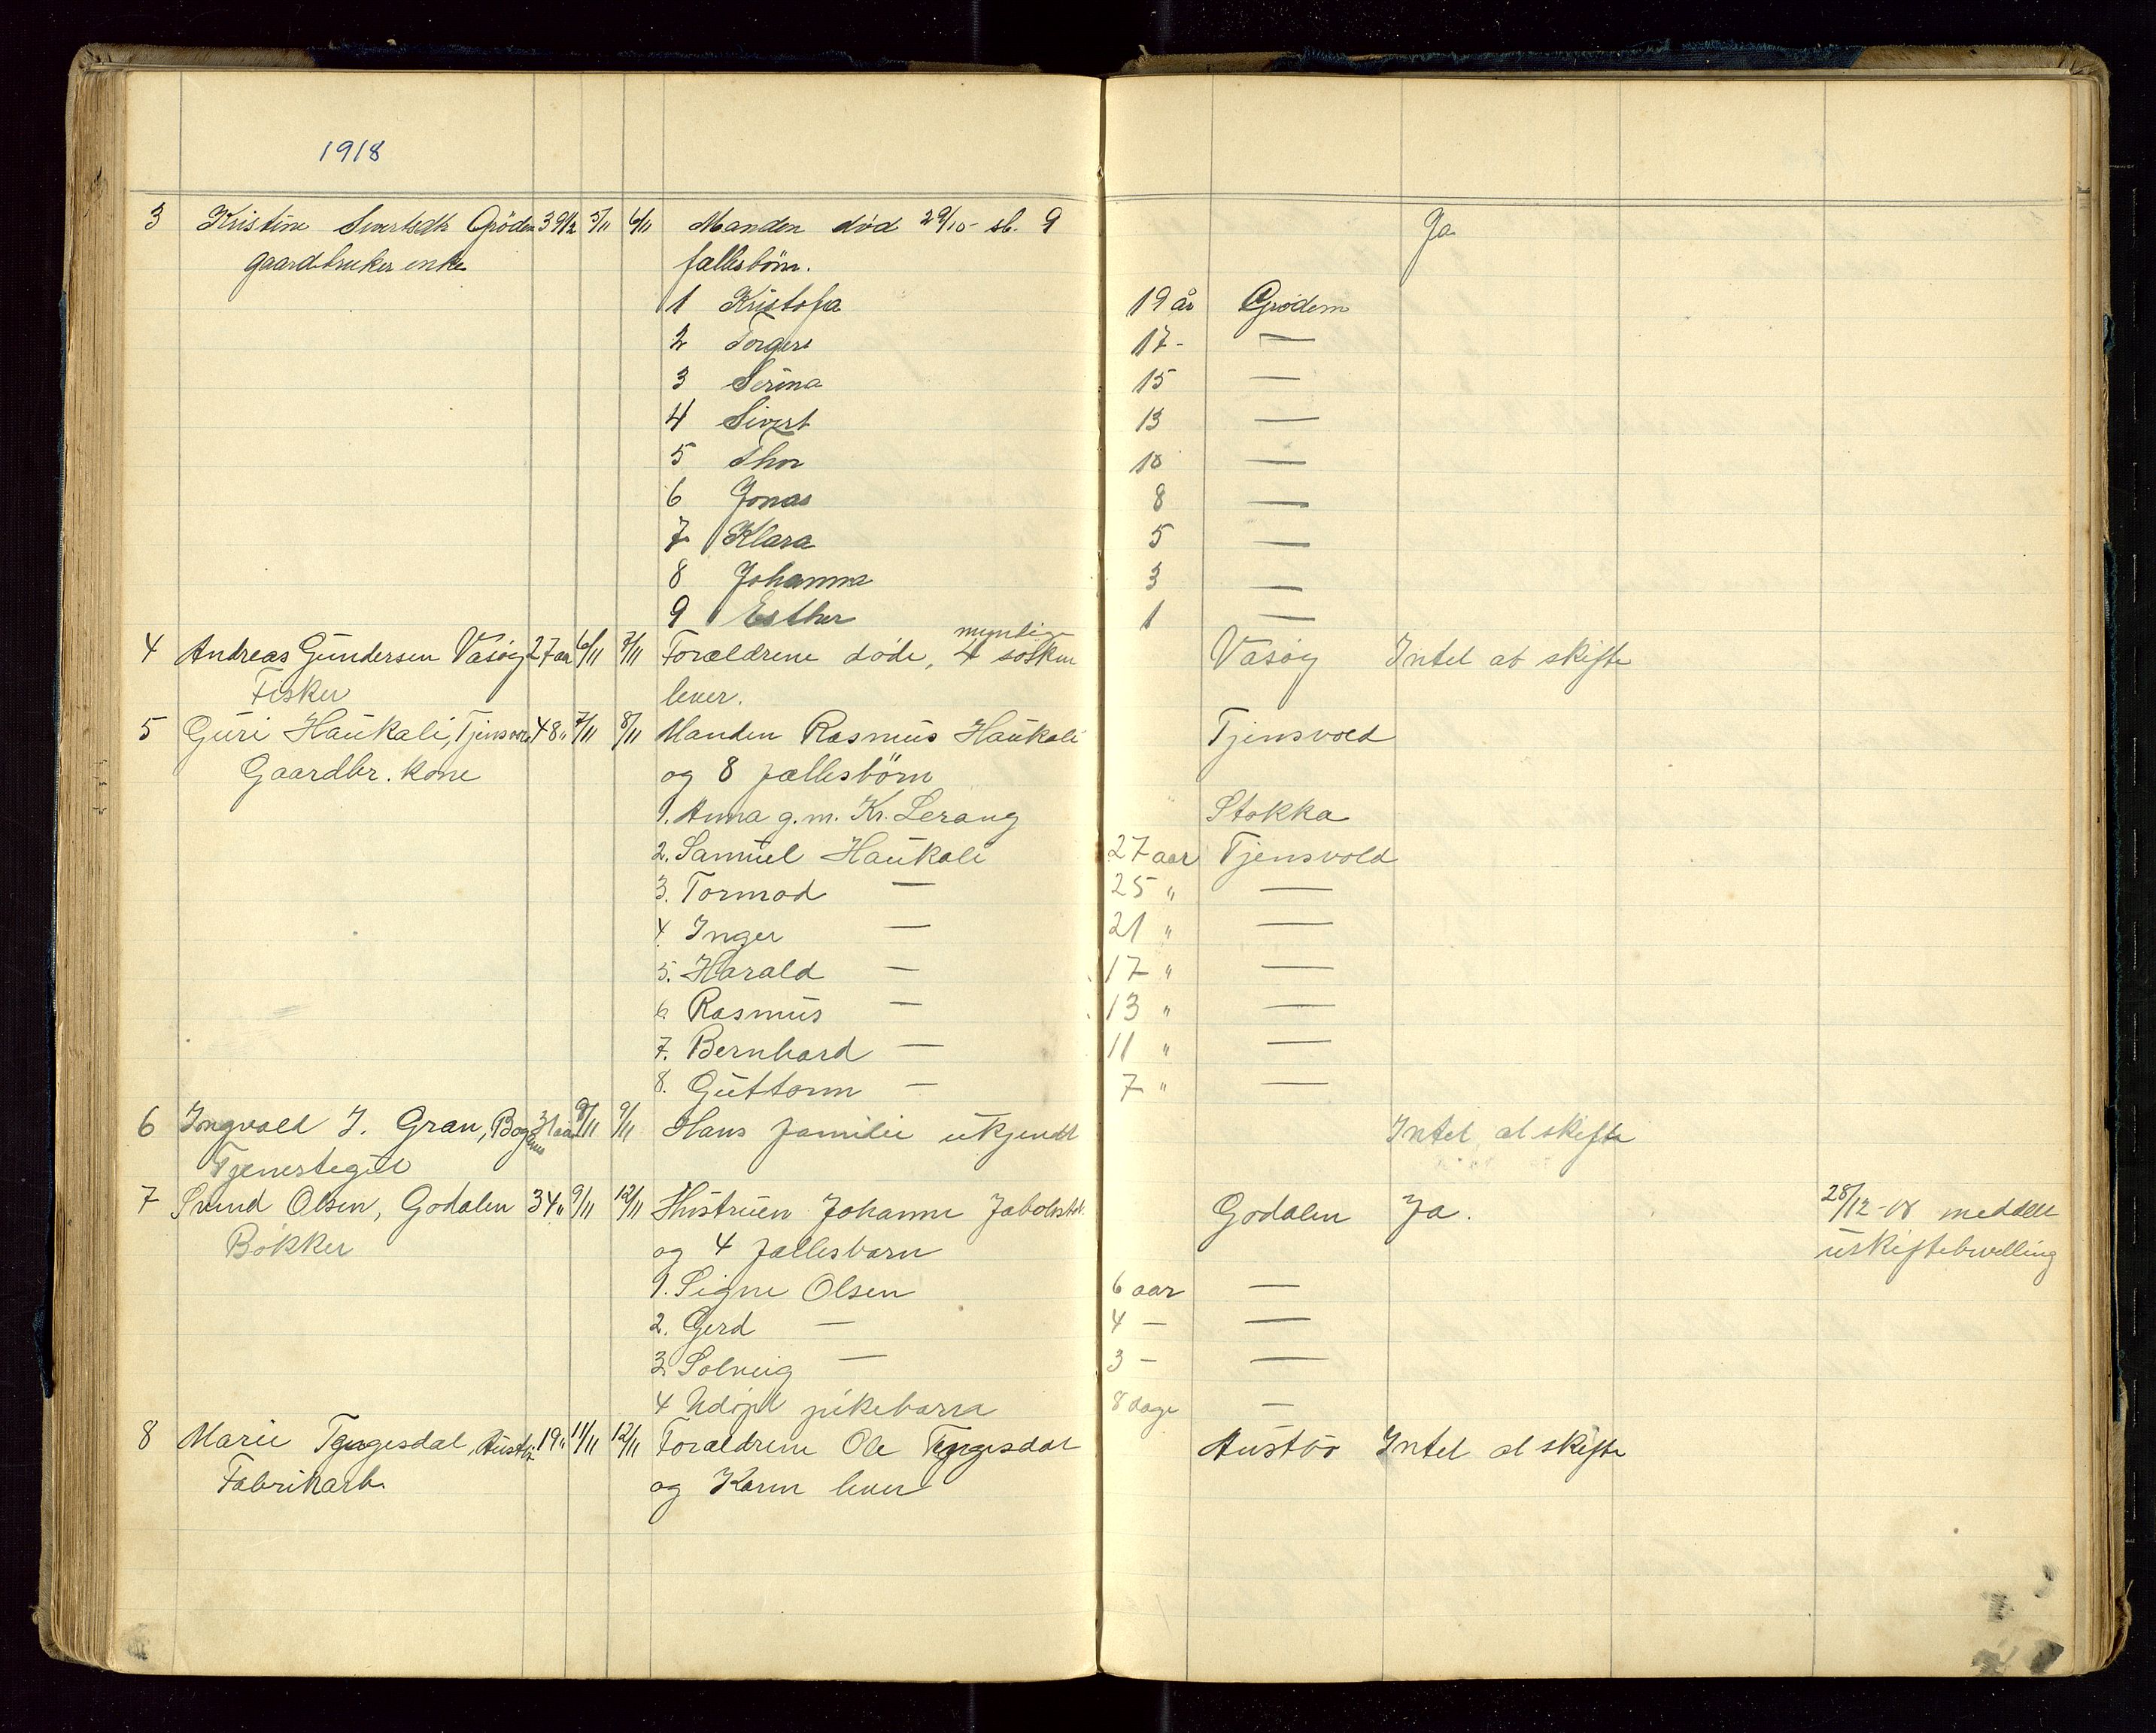 1918
3 Kristine Sivertsdtr Grödem 39 1/2 5/11 6/11 Manden död 29/10- sb. 9 Ja
gaardbruker enke fællesbörn.
1 Kristofa 19 år Grödem
2 Torger 17- —
3 Serina 15 —
4 Sivert 13 —
5 Thor 10 —
6 Jonas 8 —
7 Klara 5 —
8 Johanna 3 —
9 Esther 1 —
myndige
4 Andreas Gundersen Vasöy 27 aar 6/11 7/11 Forældrene döde, 4 søsken Vasöy Intet at skifte
Fisker lever.
5 Guri Haukali, Tjensvold 48" 7/11 8/11 Manden Rasmus Haukali Tjensvold
Gaardbr. kone og 8 fællesbörn
1. Anna g.m. Kr. Lerang Stokka
2. Samuel Haukali 27 aar Tjensvold
3. Tormod — 25 " —
4. Inger — 21 " —
5. Harald — 17 " —
6. Rasmus — 13 " —
7. Bernhard — 11 " —
8. Guttorm — 7 " —
6 Ingvald J. Gran, 31 aar 8/11 9/11 Hans familie ukjendt Intet at skifte
Tjenestegut
7 Svend Olsen, Godalen 34" 9/11 12/11 Hustruen Johanne Godalen Ja. 28/12-18 meddelt
Bökker og 4 fællesbarn uskiftebevilling
1. Signe Olsen 6 aar —
2. Gerd — 4 — —
3. Solveig — 3 — —
4 Udöpt pikebarn 8 dage —
8 Marie Tengesdal, Austbö 19" 11/11 12/11 Forældrene Ole Tengesdal Austbö Intet at skifte
Fabrikarb. og Karen lever